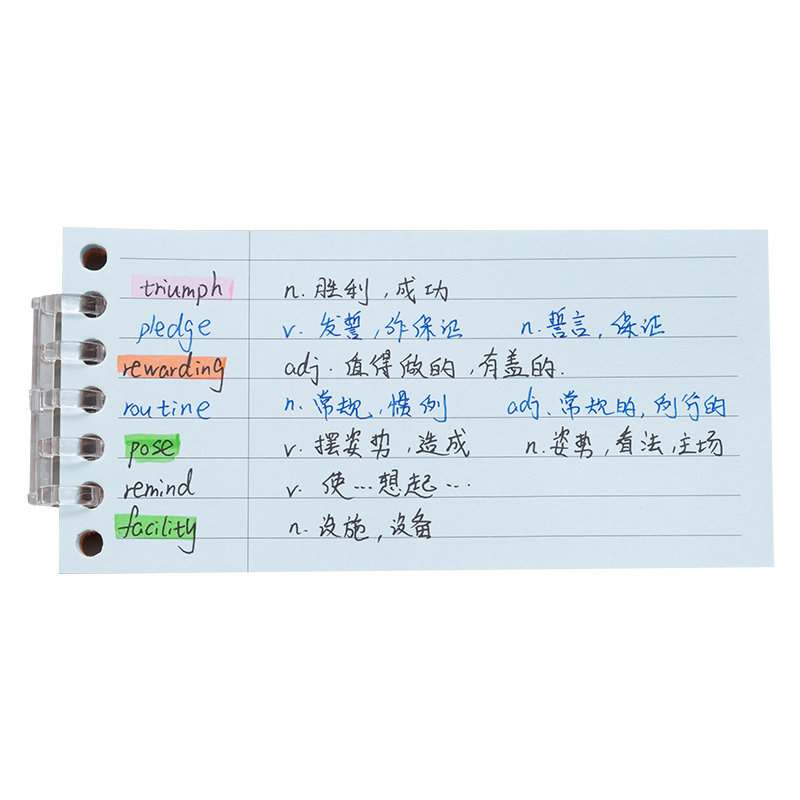 triumph n.胜利,成功
pledge v. 发誓,作保证 n. 誓言,保证
rewarding adj. 值得做的,有盖的.
routine n. 常规,惯例 adj. 常规的,例行的
pose v. 摆姿势,造成 n. 姿势,看法,主场
remind v. 使…想起…
facility n. 设施,设备